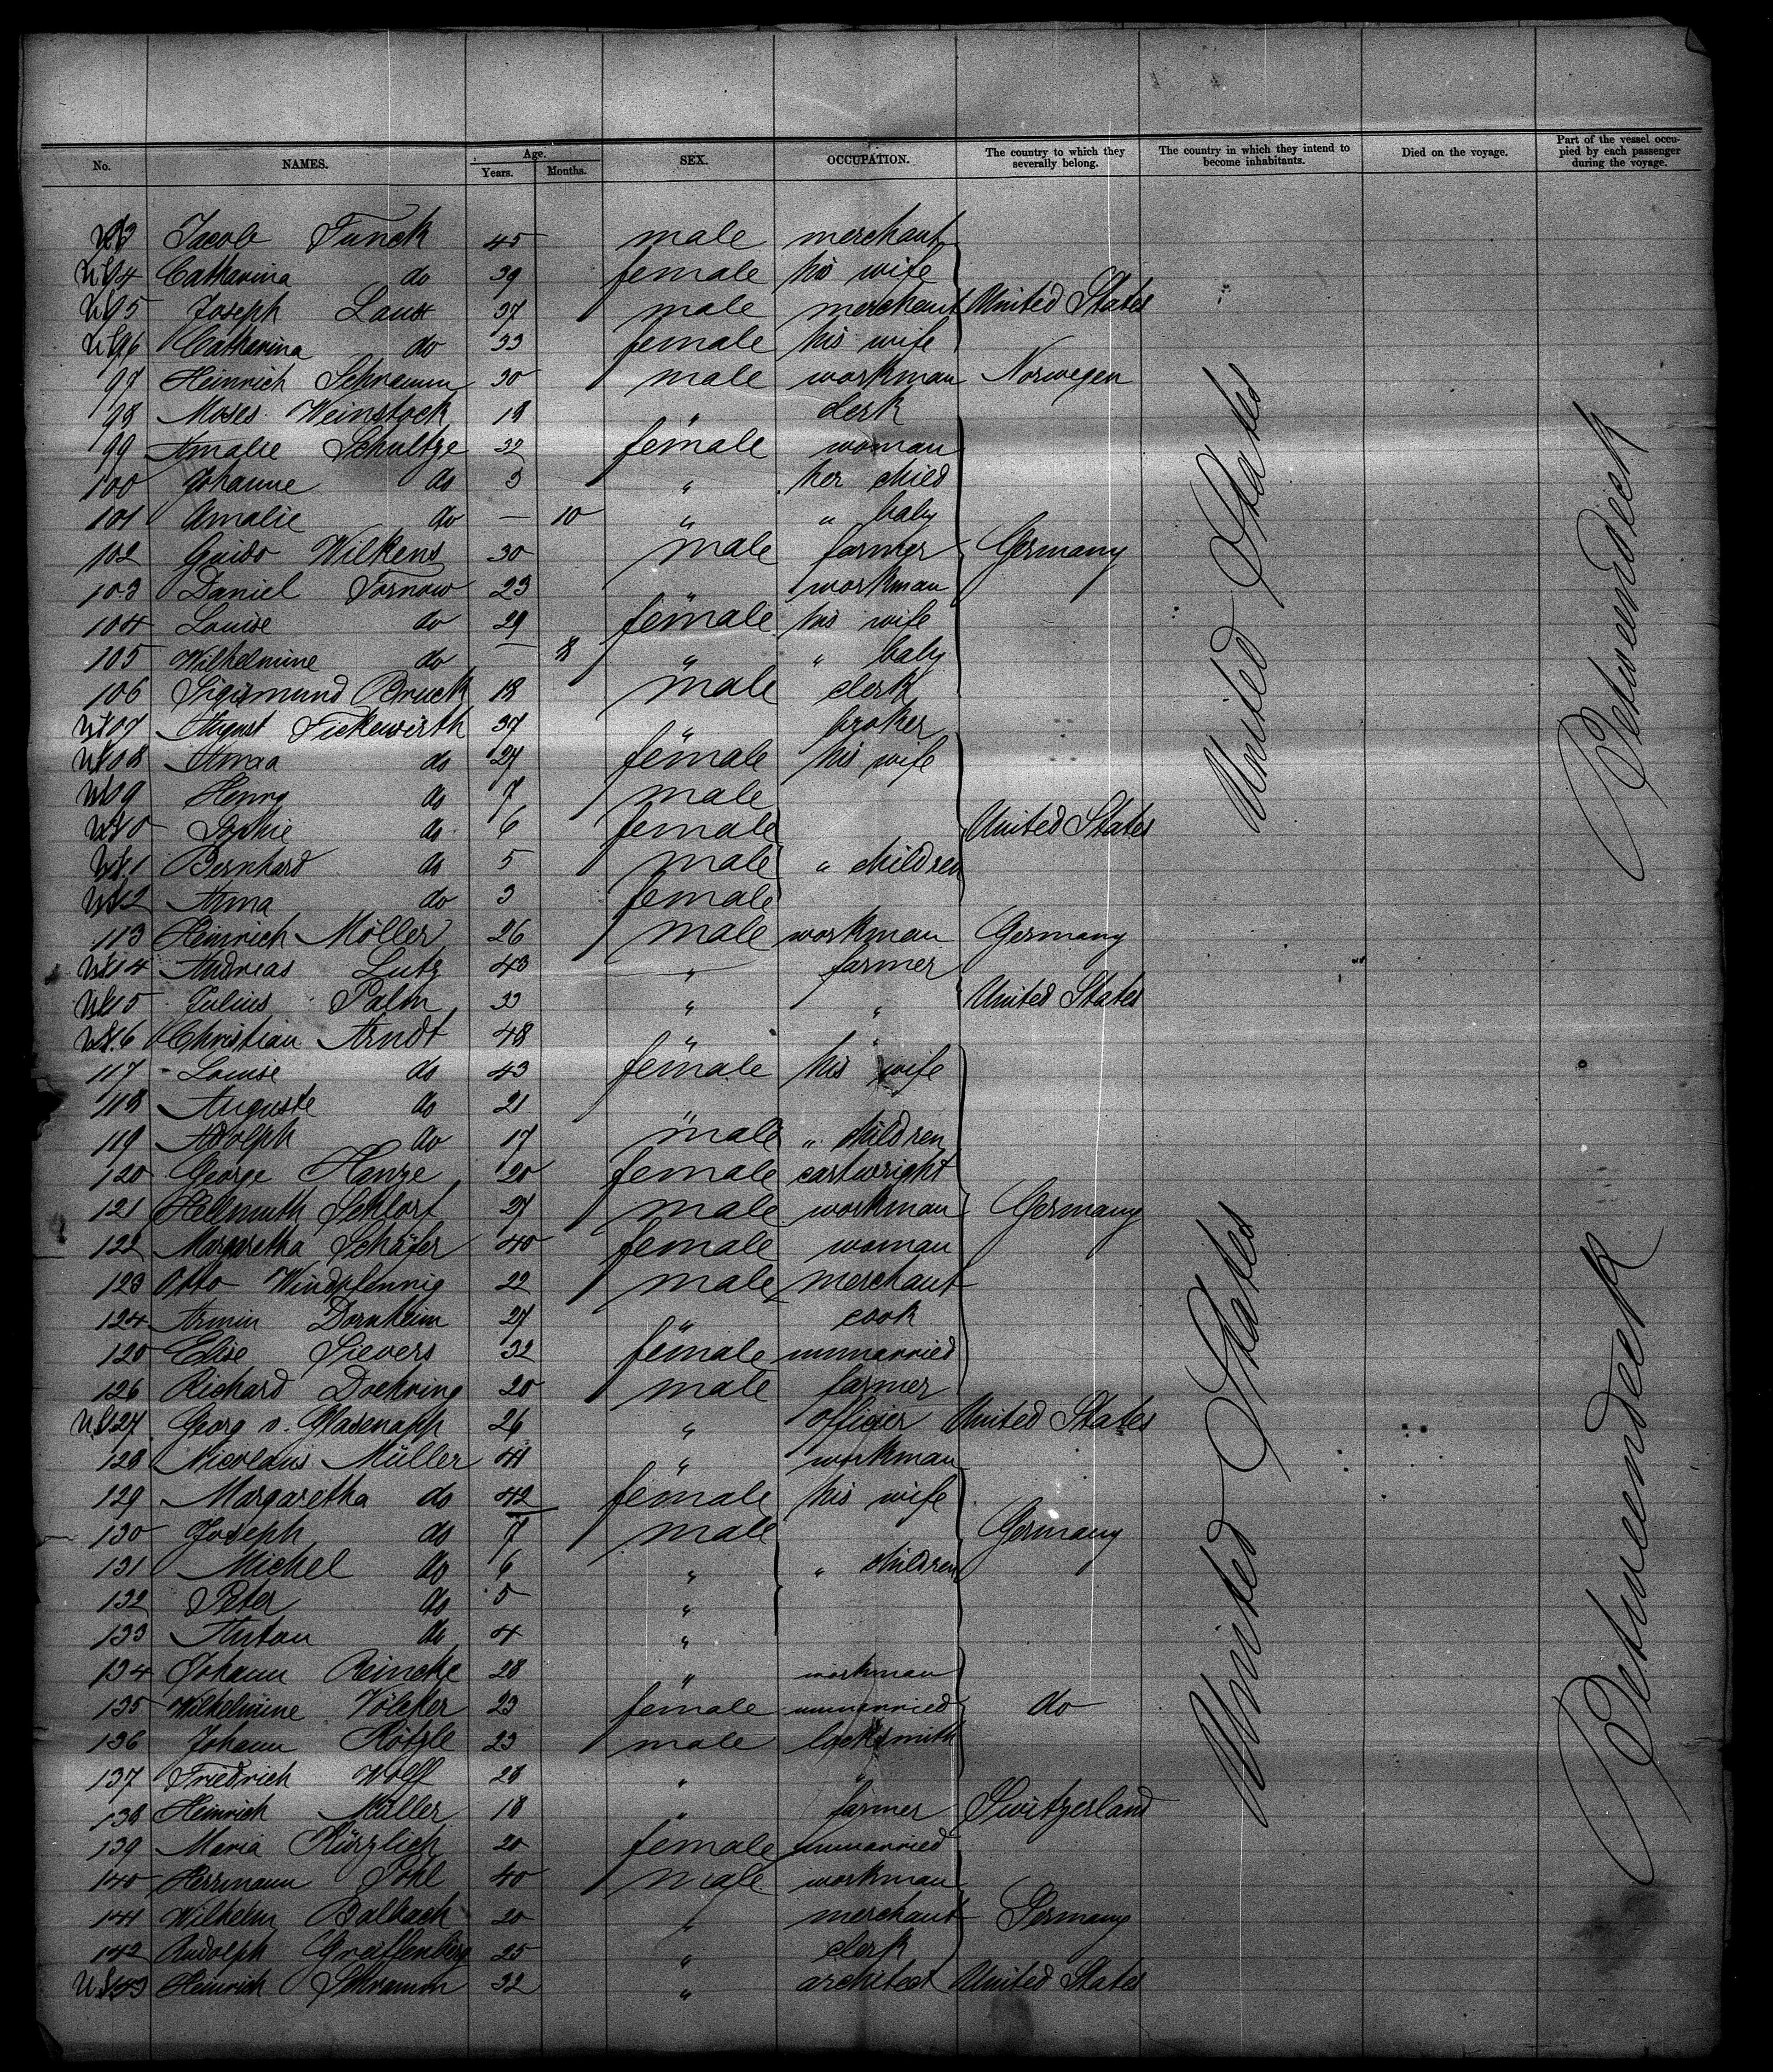 No. NAMES. Age. Years. Months. SEX. OCCUPATION. The country to which they severally belong. The country in which they intend to become inhabitants. Died on the voyage. Part of the vessel occupied by each passenger during the voyage.
93 Jacob Funck 45 male merchant
94 Catharina do 39 female his wife
95 Joseph Laux 37 male merchant United States
96 Catharina do 33 female his wife
97 Heinrich Schramm 30 male workman Norwegen
98 Moses Weinstock 18 " clerk
99 Amalie Schultze 32 female woman
100 Johanne do 3 " her child
101 Amalie do — 10 " " baby
102 Guido Wilkens 30 male farmer Germany
103 Daniel Tornow 23 " workman
104 Louise do 29 female his wife
105 Wilhelmine do — 8 " " baby
106 Sigismund Bruck 18 male clerk
U.S. 107 August Fickewirth 37 " broker
U.S. 108 Anna do 27 female his wife
U.S. 109 Henry do 7 male
U.S. 110 Sophie do 6 female United States
U.S. 111 Bernhard do 5 male " children
U.S. 112 Anna do 3 female
113 Heinrich Möller 26 male workman Germany
U.S. 114 Andreas Lutz 43 " farmer
U.S. 115 Julius Palm 33 " " United States
U.S. 116 Christian Arndt 48 " "
117 Louise do 43 female his wife
118 Auguste do 21
119 Adolph do 17 male " children
120 George Hanze 20 female cartwright
121 Hellmuth Schlorf 27 male workman Germany
122 Margaretha Schäfer 40 female woman
123 Otto Windpfennig 22 male merchant
124 Armin Dornheim 27 " cook
120 Elise Sievers 32 female unmarried
126 Richard Doehring 20 male farmer
U.S. 127 Georg v. Glasenapp 26 " officier United States
128 Nicolaus Müller 41 " workman
129 Margaretha do 42 female his wife
130 Joseph do 7 male Germany
131 Michel do 6 " " children
132 Peter do 5 "
133 Anton do 4 "
134 Johann Reincke 28 " workman
135 Wilhelmine Völcker 23 female unmarried do
136 Johann Kötzle 23 male locksmith
137 Friedrich Wolff 28 " "
138 Heinrich Müller 18 " farmer Switzerland
139 Maria Kürzlich 20 female unmarried
140 Herrmann Pohl 40 male workman
141 Wilhelm Balbach 20 " merchant Germany
142 Rudolph Greiffenberg 25 " clerk
U.S. 143 Heinrich Schramm 32 " architect United States
United States
United States
Betweendeck
Betweendeck